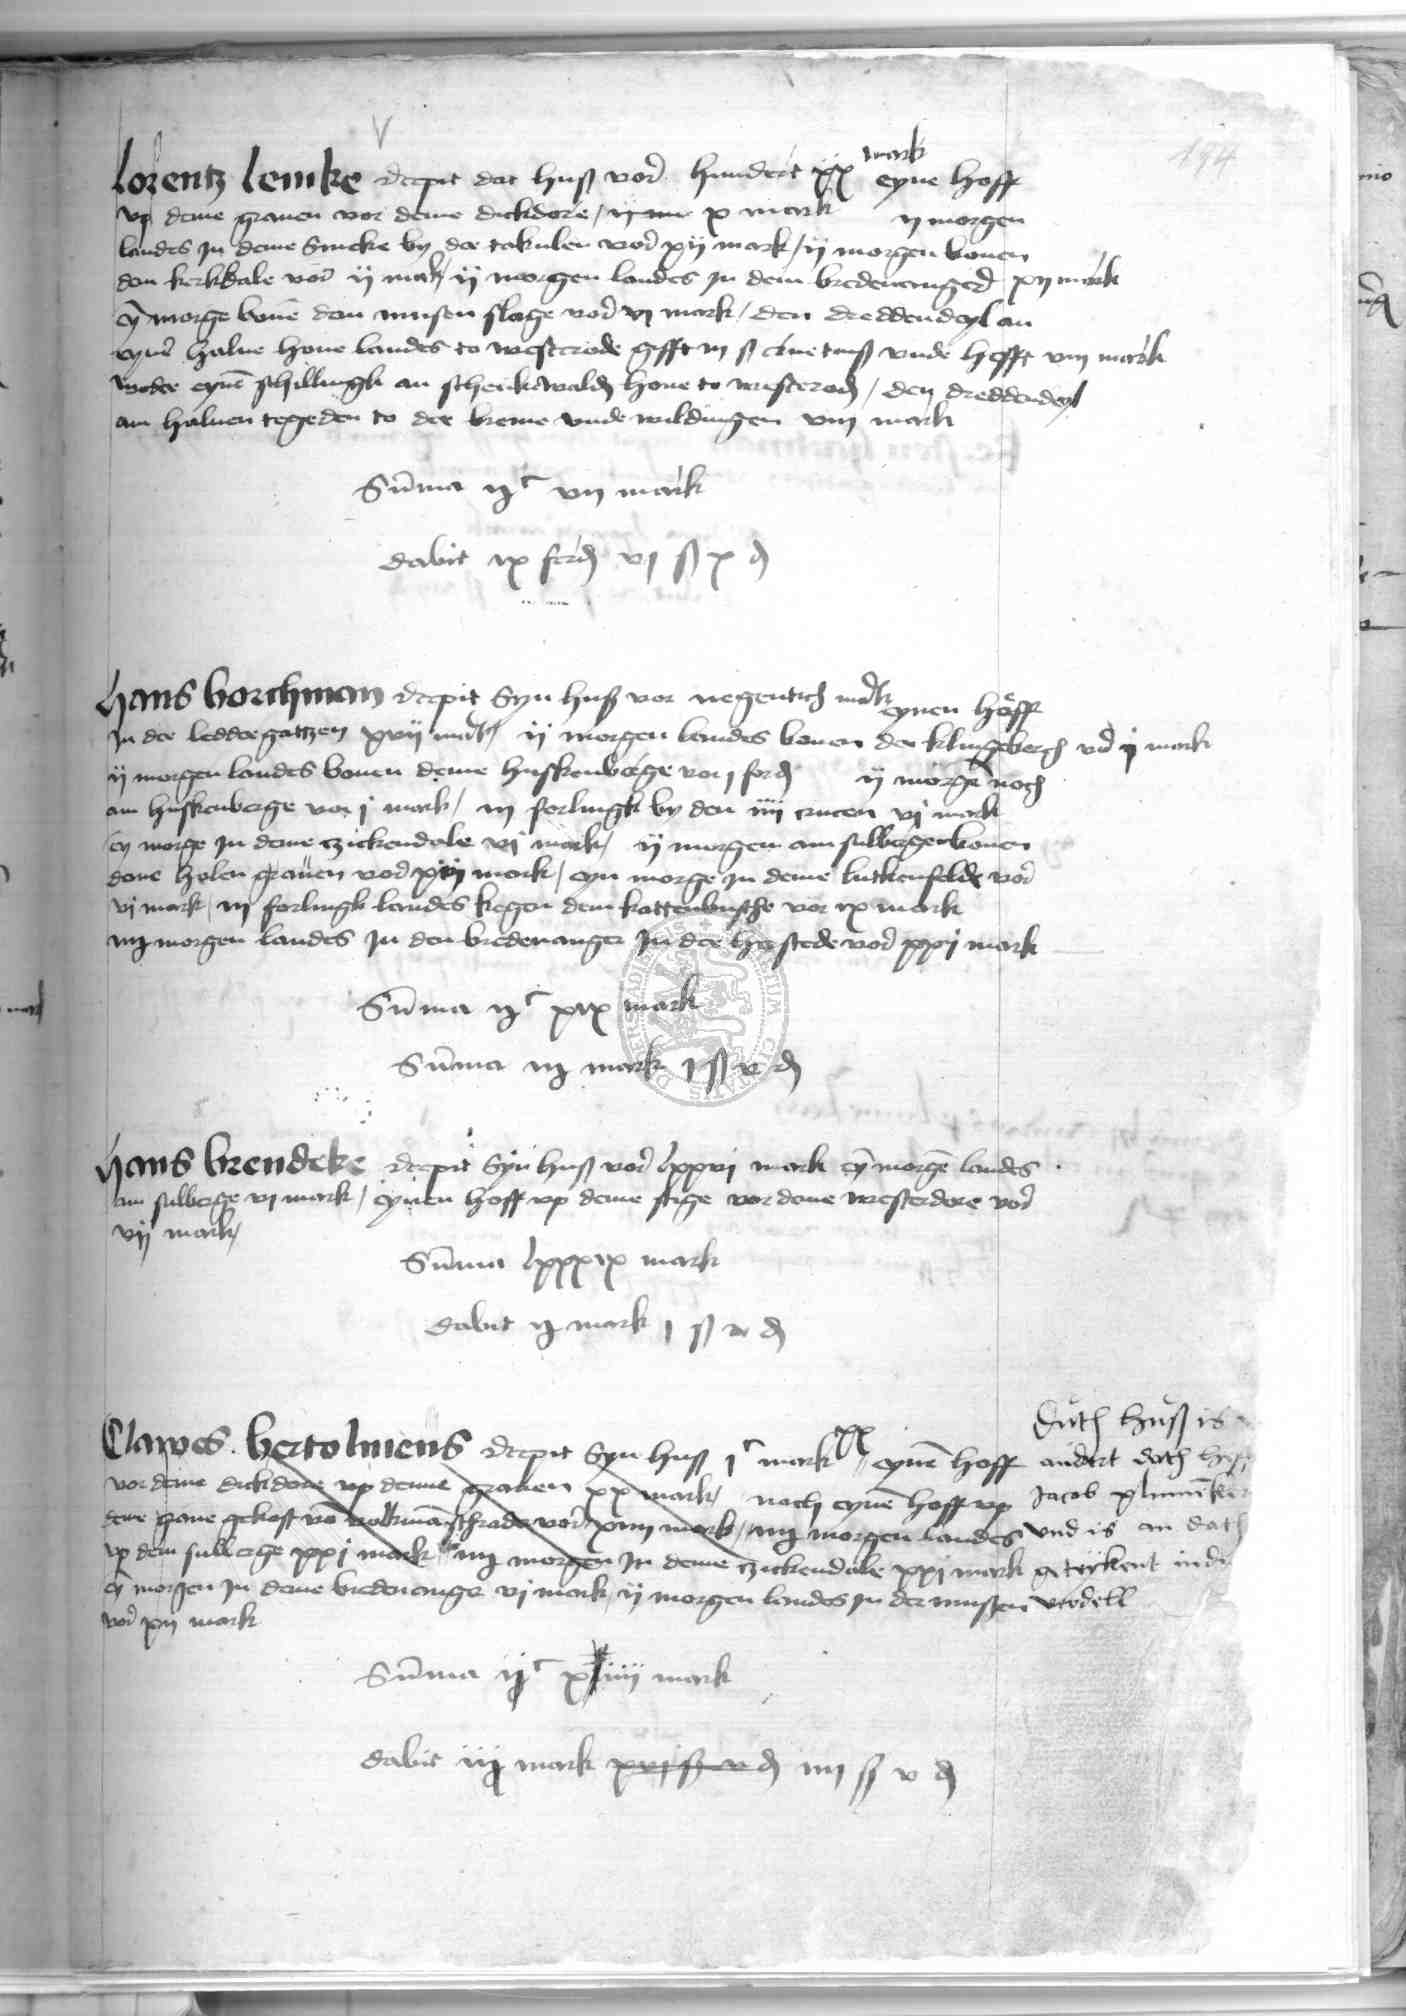 194
Lorentz Lemke recepit dat huß vor hundert xx mark eyne hoff
vp deme grauen vor deme dickdore / x mark ij morgen
landes in deme by der vor xij mark / ij morgen bouen
den kerkdale vor ij mark / ij morgen landes in dem bredenanger xij mark
eyn morge bouen dem slage vor vj mark / den dreddendeyl an
eyner halue houe landes to westerode gifft iij ß vnde hefft viij mark
wedder eynen schillingk an houe to / den dreddendeyl
am haluen tegeden to der breme vnde wildungen viij mark
Summa ijc vij mark
dabit ix ferd vj ß x d
Hans Borchman recepit syn huß vor negentich mark eynen hoff
in der leddergatzen xvij mark / ij morgen landes bouen der klingeberch vor ij mark
ij morgen landes bouen deme huskenberge vor j ferd ij morgen noch
am huskenberge vor j mark / iij forlingk by den iiij crucen vj mark
eyn morge in deme czickendale vj mark / ij morgen am sulbergen bouen
deme holen grauen vor xiij mark / eyn morge in deme luttkenfelde vor
vj mark / iij forlingk landes kegen dem kattenbusche vor ix mark
iij morgen landes in den bredenanger in der vor xxj mark
Summa ijc xix mark
Summa iij mark j ß v d
Hans Brendeke recepit syn huß vor lxxvj mark eyn morgen landes
am sulberge vj mark / eynen hoff vp deme stige vor deme westerdore vor
vij mark /
Summa lxxxix mark
dabit ij mark j ß v d
Clawes Bertolmeus recepit syn huß jc mark xx eynen hoff
vor deme dickdore vp deme grauen xx mark / noch eynen hoff vp
deme gekoft von vor xiiij mark / iij morgen landes
vp dem sulberge xxj mark / iij morgen in deme czickendale xxj mark
eyn morgen in deme bredenanger vj mark / ij morgen landes in der
vor xij mark
Duth huß is
andert dath
Jacob
vnd is an dath
geteykent
verdell
Summa ijc mark
dabit iij mark xvj ß v d iiij ß v d